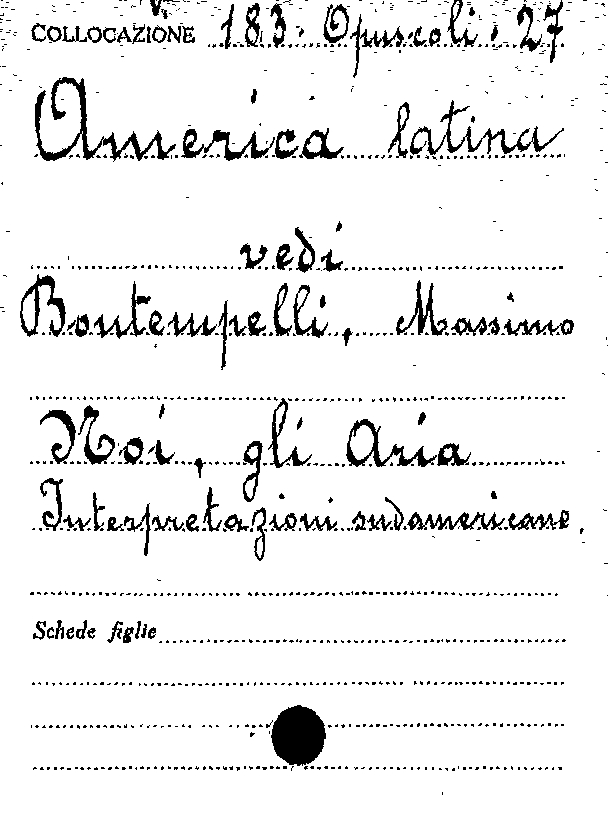 COLLOCAZIONE 183. Opuscoli. 27
America latina
vedi
Bontempelli, Massimo
Noi, gli Aria
Interpretazioni sudamericane.
Schede figlie